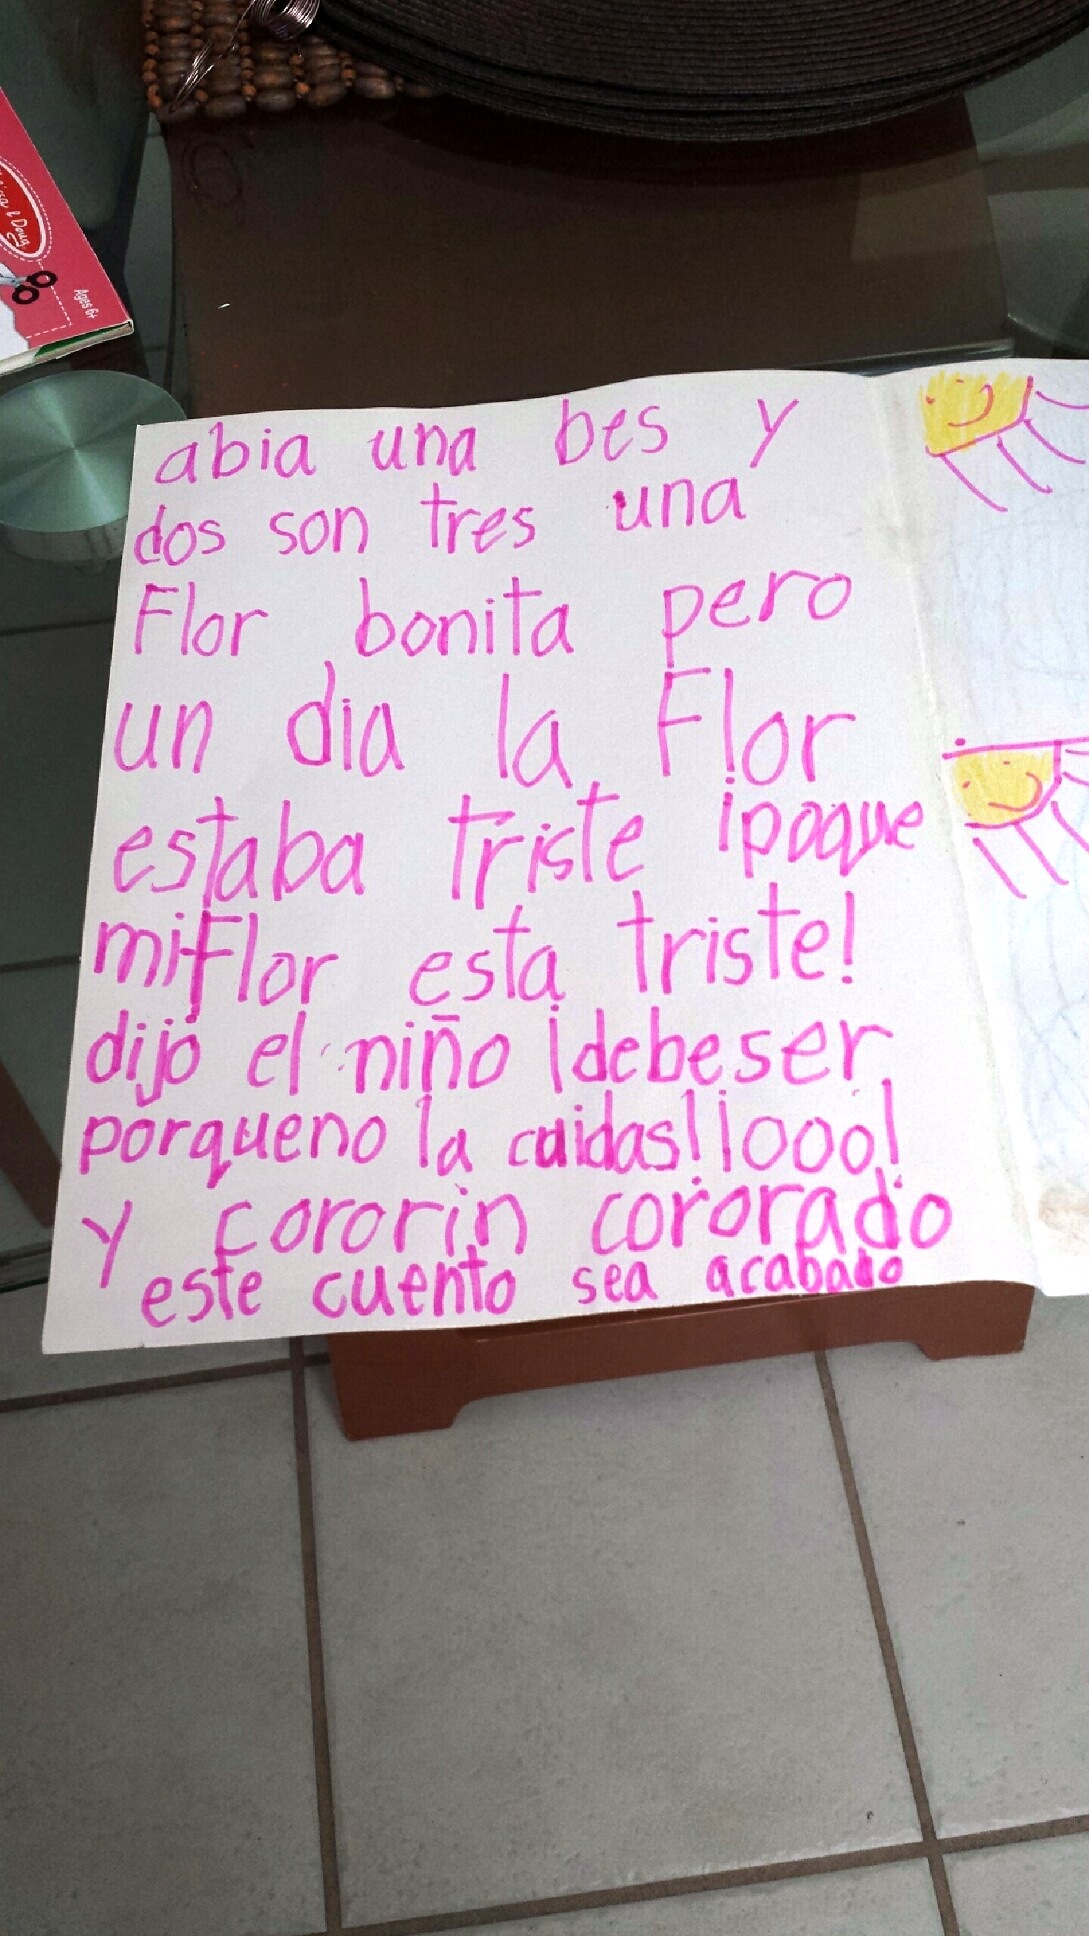 & Doug
Ages 6+
abia una bes y
dos son tres una
Flor bonita pero
un dia la Flor
estaba triste ¡poque
mi Flor esta triste!
dijo el niño ¡debeser
porqueno la cuidas! ¡ooo!
y cororin cororado
este cuento sea acabado